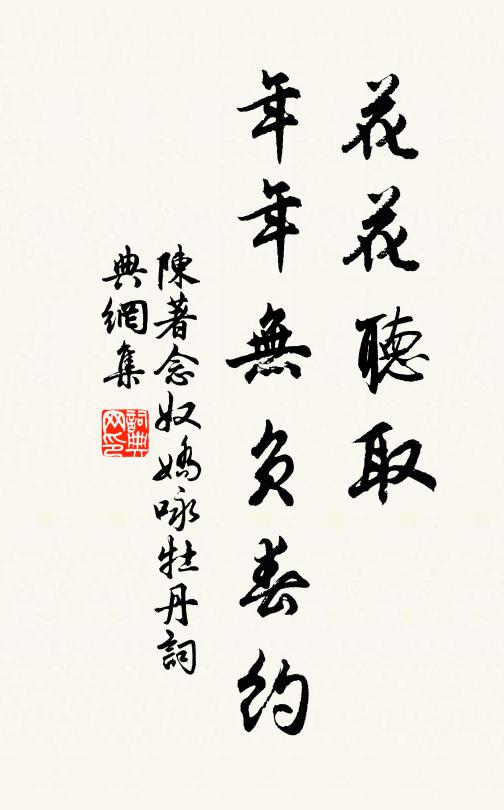 花花聽取
年年無負春約
陳著念奴嬌咏牡丹詞
典網集
詞典網印